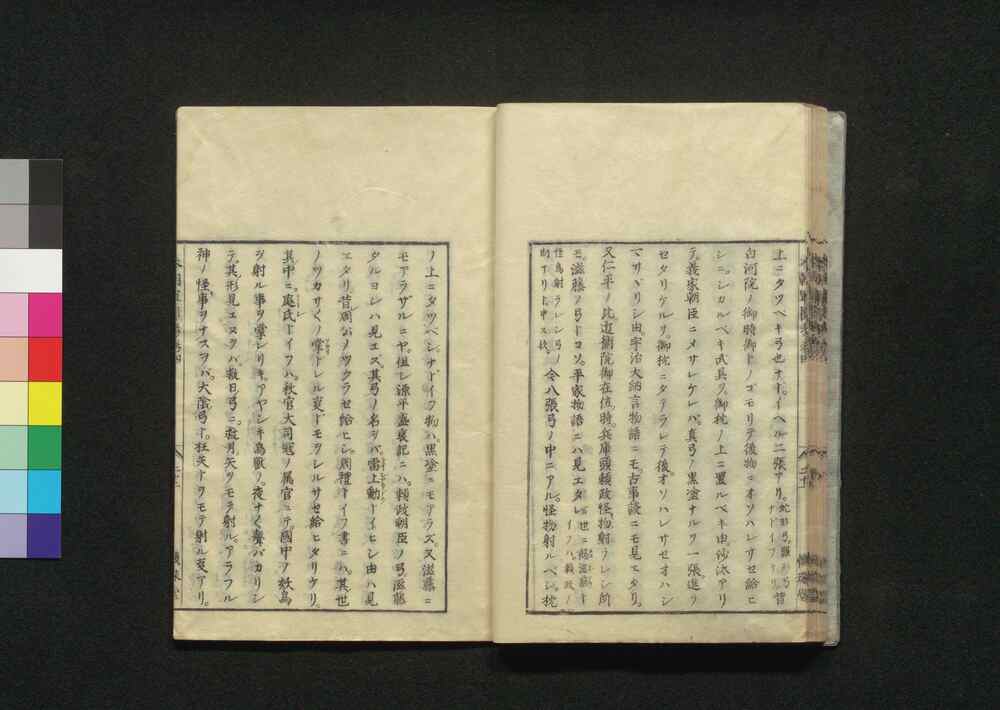 上ニタツベキ弓也ナド、イヘル二張アリ。蛇形弓。羅形弓皆ナドイフトリ。
白河院ノ御時御トノゴモリテ後物ニオソハレサセ給ヒ
シニ。シカルベキ武具ヲ御枕ノ上ニ置ルベキ由。御沙汰アリ
テ。義家朝臣ニメサレケレバ。真弓ノ黒塗ナルヲ一張進ラ
セタリケルヲ。御枕ニタテラレテ後。オソハレサセオハシ
マサヾリシ由。宇治大納言物語ニモ。古事談ニモ見エタリ。
又仁平ノ比。近衛院御在位時。兵庫頭頼政怪物射ラレシ所
モ。滋藤ノ弓トコソ。平家物語ニハ見エタレ
怪鳥射ラレシ弓ノ
今八張弓ノ中ニアル。怪物射ルベシ。枕
ノ上ニタツベシ。ナドイフ物ハ。黒塗ニモアラズ。又滋藤ニ
モアラザルニヤ。但シ源平盛衰記ニハ。頼政朝臣ノ弓滋藤
タルヨシハ見エズ。其弓ノ名ヲバ。雷上動トイヒシ由ハ見
エタリ。昔周公ノツクラセ給ヒシ。周禮トイフ書ニハ。其世
ノツカサ〱ノ掌トレル事ドモヲシルサセ給ヒタリケリ。
其中ニ。庭氏トイフハ。秋官大司寇ノ属官ニテ。國中ノ妖鳥
ヲ射ル事ヲ掌レリキ。アヤシキ鳥獸ノ。夜ナク聲バカリシ
テ。其形見エヌヲバ。救日弓ニ。救月矢ヲモテ射ル。アラフル
神ノ怪事ヲナスヲバ。大陰弓ニ。枉矢トヲモテ射ル事アリ。